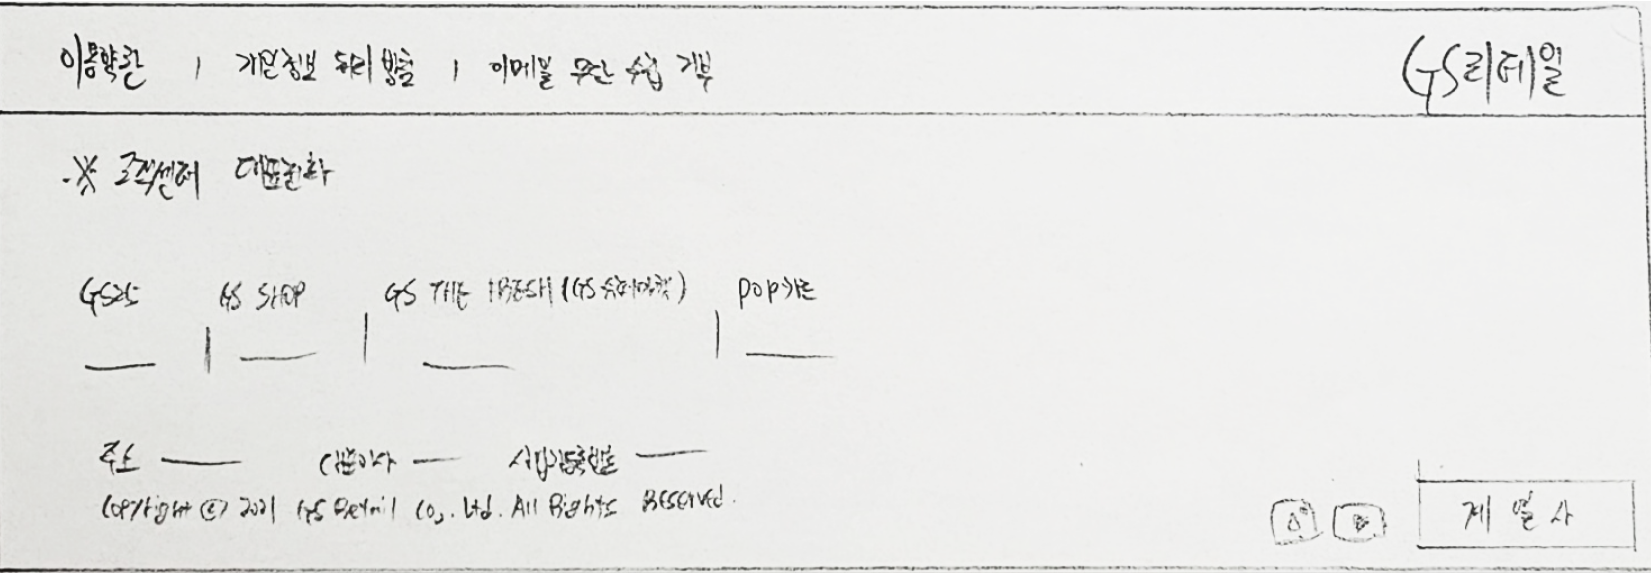 이용약관 | 개인정보 처리 방침 | 이메일 무단 수집 거부
GS리테일
※ 고객센터 대표전화
GS25 GS SHOP GS THE FRESH (GS수퍼마켓) POP카드
주소 대표이사 사업자등록번호
Copyright © 2021 GS Retail Co,. Ltd. All Rights Reserved.
계열사